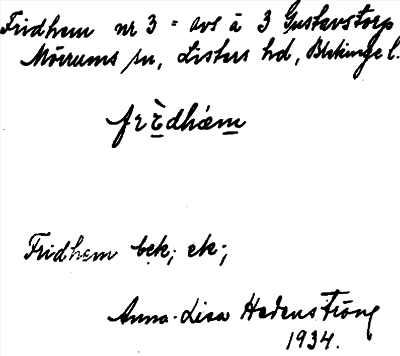 Fridhem nr 3 = avs å 3 Gustavstorp
Mörrums sn, Listers hd, Blekinge l.
frèdhæm
Fridhem bek; ek;
Anna-Lisa Hedenström
1934.